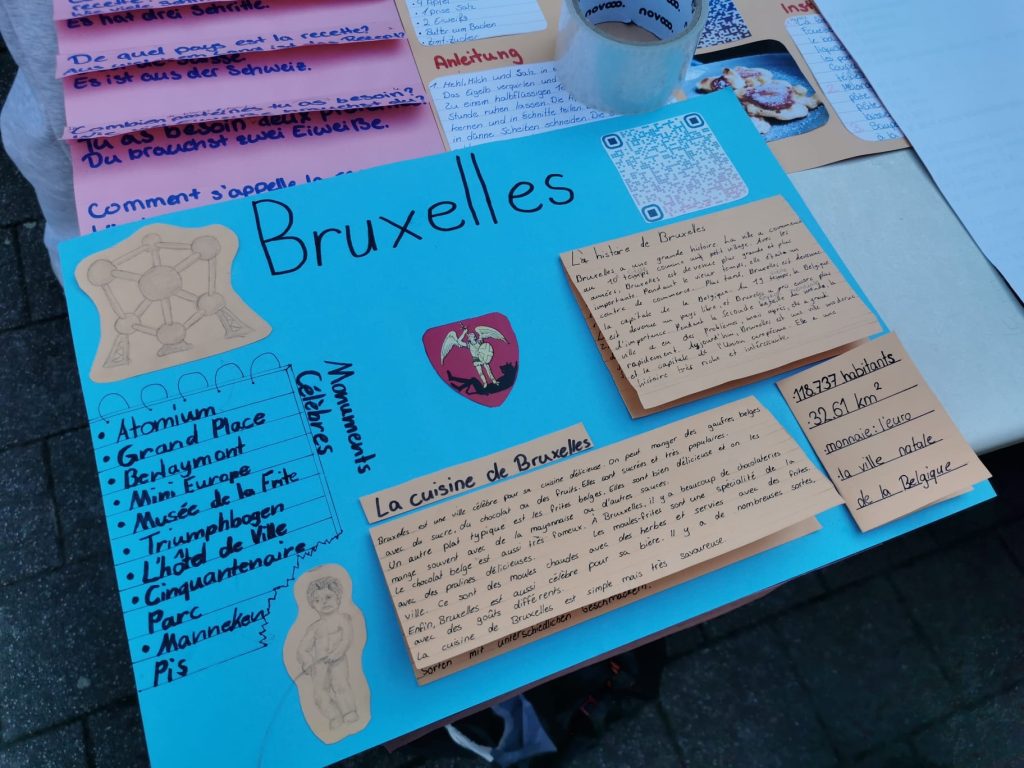 recette,
Es hat drei Schritte.
De quel pays est la recette?
Es ist aus der Schweiz.
Tu as besoin deux
Du brauchst zwei Eiweiße.
Comment s'appelle la
2 Äpfel
1 Prise Salz
2 Eiweiß
Butter zum Backen
Zimt-Zucker
Anleitung
1. Mehl, Milch und Salz in
Das Eigelb verquirlen und
Zu einem halbflüssigen
Stunde ruhen lassen. Die
kernen und in Schnitte teilen
in dünne Scheiben schneiden. Die
novooo.
Bruxelles
• Atomium
• Grand Place
• Berlaymont
• Mini Europe
• Musée de la Frite
• Triumphbogen
• L'hôtel de Ville
• Cinquantenaire
Parc
• Manneken
Pis
Monuments
Célèbres
L'a histoire de Bruxelles
Bruxelles a une grande histoire. La ville a commencé
au 10 temps comme un petit village. Avec les
années, Bruxelles est devenue plus grande et plus
importante. Pendant le vieux temps, elle était un
centre de commerce. Plus tard, Bruxelles est devenue
la capitale de la Belgique. Au 19 temps, la Belgique
est devenue un pays libre et Bruxelles a pris encore plus
d'importance. Pendant la Seconde bagarre du monde, la
ville a eu des problèmes, mais après, elle a grandi
rapidement. Aujourd'hui, Bruxelles est une ville moderne
et la capitale de l'Union européenne. Elle a une
histoire très riche et intéressante.
La cuisine de Bruxelles
Bruxelles est une ville célèbre pour sa cuisine délicieuse. On peut manger des gaufres belges
avec du sucre, du chocolat au des fruits. Elles sont sucrées et très populaires.
Un autre plat typique est les frites belges. Elles sont bien délicieuse et on les
mange souvent avec de la mayonnaise ou d'autres sauces.
Le chocolat belge est aussi très fameux. À Bruxelles, il y a beaucoup de chocolateries
avec des pralines délicieuses. Les moules-frites sont une spécialité de la
ville. Ce sont des moules chaudes avec des herbes et servies avec des frites.
Enfin, Bruxelles est aussi célèbre pour sa bière. Il y a de nombreuses sortes
avec des goûts différents.
La cuisine de Bruxelles est simple mais très savoureuse.
Sorten mit unterschiedlichen Geschmäckern.
.118.737 habitants
.32.61 km²
monnaie: l'euro
.la ville natale
de la Belgique